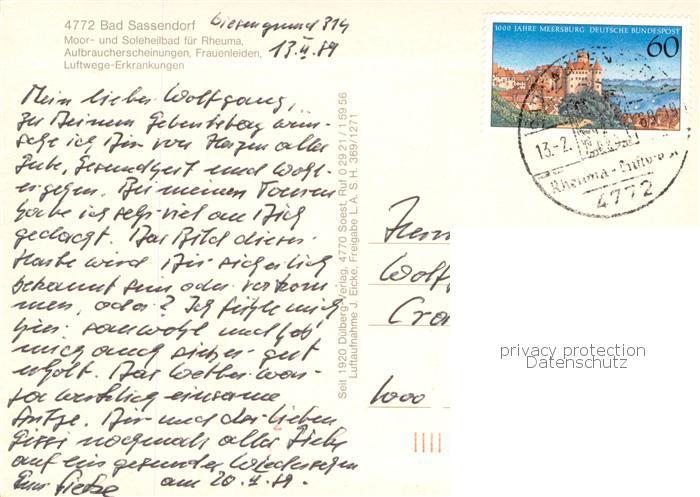 4772 Bad Sassendorf
Moor- und Soleheilbad für Rheuma,
Aufbraucherscheinungen, Frauenleiden,
Luftwege-Erkrankungen
Wiesengrund 314
13.II.89
Mein lieber Wolfgang,
zu Deinem Geburtstag wün-
sche ich Dir von Herzen alles
Gute, Gesundheit und Wohl-
ergehen. Bei meinen Touren
habe ich sehr viel an Dich
gedacht. Das Bild dieser
Karte wird Dir sicherlich
bekannt sein oder vorkom-
men, oder? Ich fühle mich
hier sauwohl und hab
mich auch sicher gut
erholt. Das Wetter war
ja wirklich einsame
Spitze. Dir und der lieben
Sissi nochmals alles Liebe
auf ein gesundes Wiedersehen
am 20.II.89.
Seit 1920 Dülberg-Verlag, 4770 Soest, Ruf 0 29 21 / 1 59 56
Luftaufnahme J. Eicke, Freigabe L. A. S. H. 369/1271
1000 JAHRE MEERSBURG DEUTSCHE BUNDESPOST
60
13.-2.
Rheuma-
4772
Herrn
Wolf
Cra
1000
privacy protection
Datenschutz